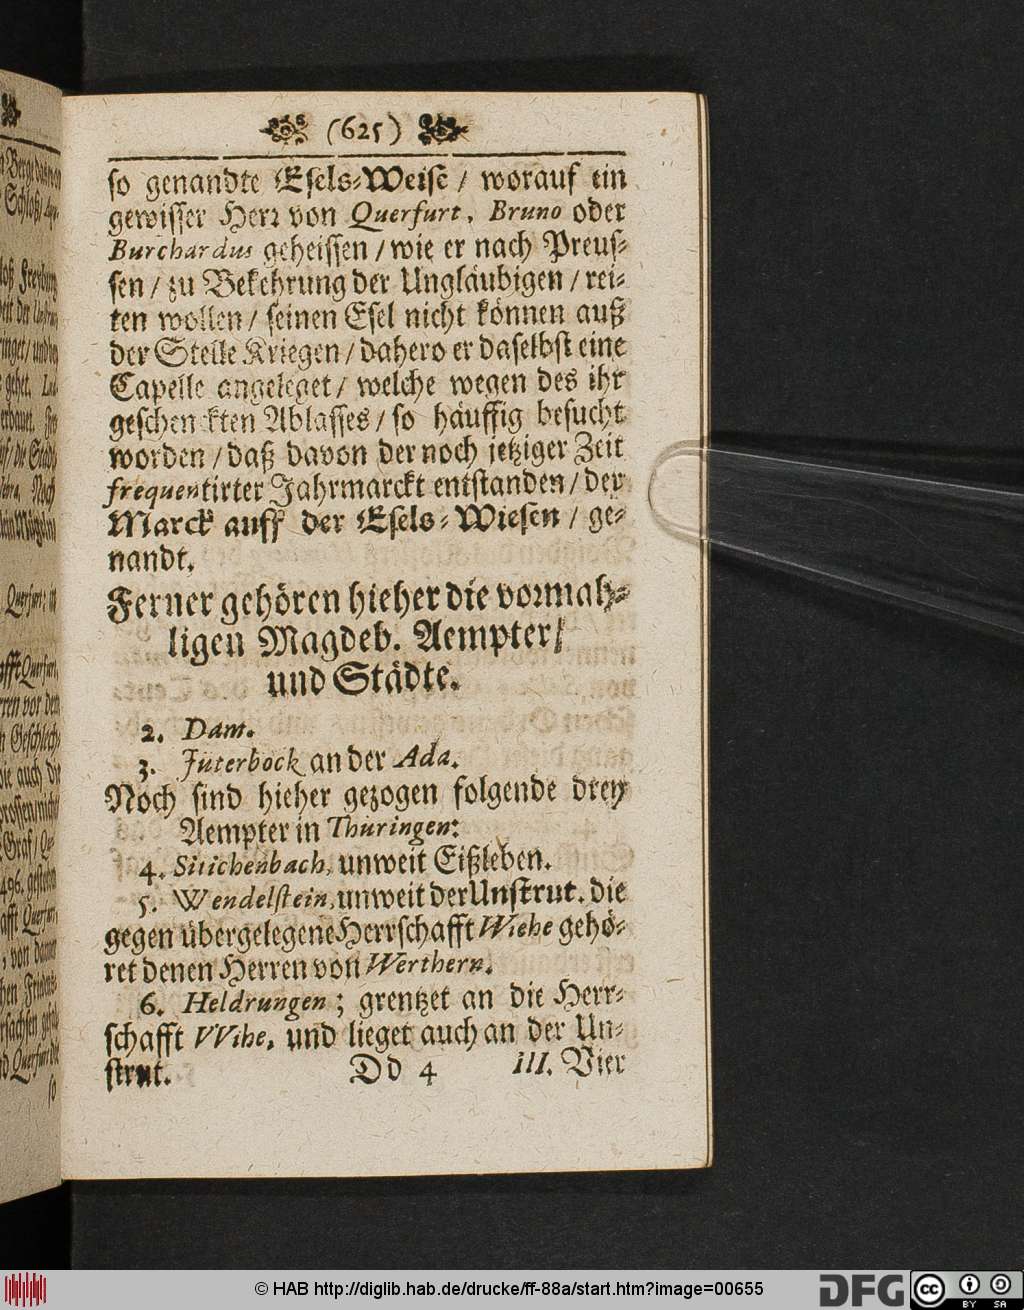 (625)
so genandte Esels-Weise / worauf ein
gewisser Herr von Querfurt, Bruno oder
Burchardus geheissen / wie er nach Preus-
sen / zu Bekehrung der Ungläubigen / rei-
ten wollen / seinen Esel nicht können auß
der Stelle Kriegen / dahero er daselbst eine
Capelle angeleget / welche wegen des ihr
geschenckten Ablasses / so häuffig besucht
worden / daß davon der noch jetziger Zeit
frequentirter Jahrmarckt entstanden / der
Marck auff der Esels-Wiesen / ge-
nandt.
Ferner gehören hieher die vormah-
ligen Magdeb. Aempter/
und Städte.
2. Dam.
3. Juterbock an der Ada.
Noch sind hieher gezogen folgende drey
Aempter in Thuringen:
4. Sittichenbach, unweit Eißleben.
5. Wendelstein, unweit der Unstrut. die
gegen übergelegene Herrschafft Wiehe gehö-
ret denen Herren von Werthern.
6. Heldrungen; grentzet an die Herr-
schafft VVihe, und lieget auch an der Un-
strut.
Dd 4 III. Vier
© HAB http://diglib.hab.de/drucke/ff-88a/start.htm?image=00655
DFG
cc BY SA